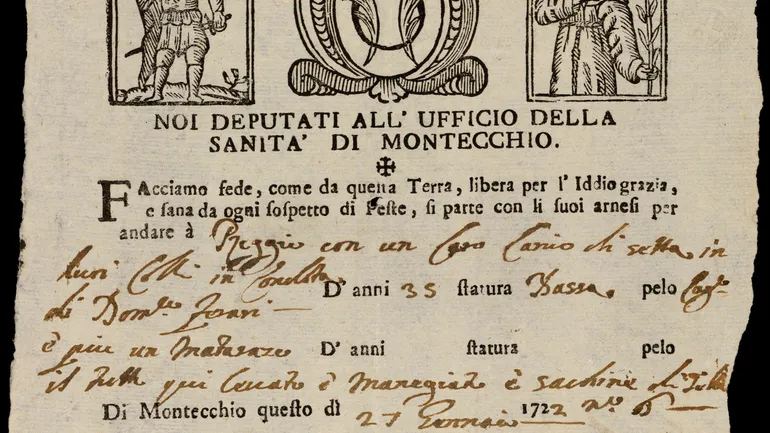 NOI DEPUTATI ALL' UFFICIO DELLA
SANITA' DI MONTECCHIO.
FAcciamo fede, come da questa Terra, libera per l' Iddio grazia,
e sana da ogni sospetto di Peste, si parte con li suoi arnesi per
andare à Reggio con un Caro Carico di setta in
in Condotta D' anni 35 statura Bassa. pelo
di Dom.co
è piu un Matarazo D' anni statura pelo
il tutto qui è Manegiato è
Di Montecchio questo dì 27 Gennaio 1722 No. 6